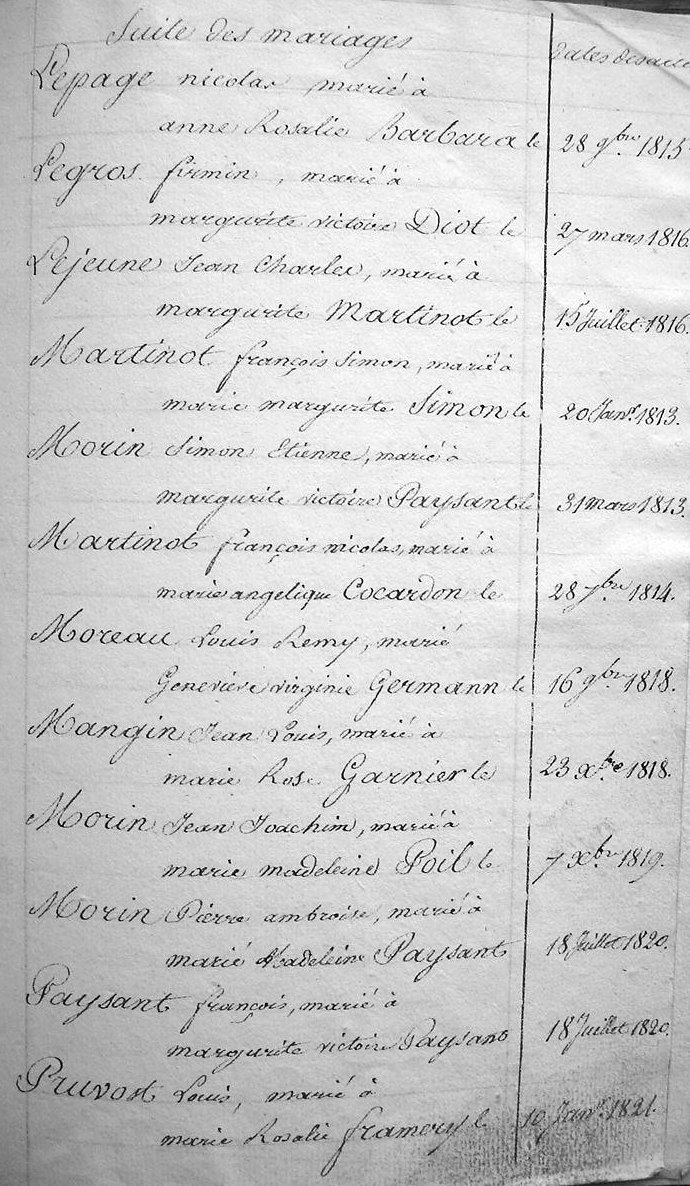 Suite des mariages
Dates des acte
Lepage nicolas marié à
anne Rosalie Barbara le 28 9bre 1815
Legros firmin, marié à
margurite victoire Diot le 27 mars 1816
Lejeune Jean Charles, marié à
margurite Martinot le 15 Juillet 1816.
Martinot françois Simon, marié à
marie margurite Simon le 20 Janr. 1813.
Morin Simon Etienne, marié à
margurite victoire Paysant le 31 mars 1813.
Martinot françois nicolas, marié à
marie angelique Cocardon le 28 7bre 1814.
Moreau Louis Remy, marié
Genevieve virginie Germann le 16 9bre 1818.
Mangin Jean Louis, marié à
marie Rose Garnier le 23 Xbre 1818.
Morin Jean Joachim, marié à
marie madeleine Poil le 7 Xbre 1819.
Morin Pierre ambroise, marié à
marie Madeleine Paysant 18 Juillet 1820.
Paysant françois, marié à
margurite victoire Paysant 18 Juillet 1820.
Pruvost Louis, marié à
marie Rosalie framery le 10 Janr. 1821.